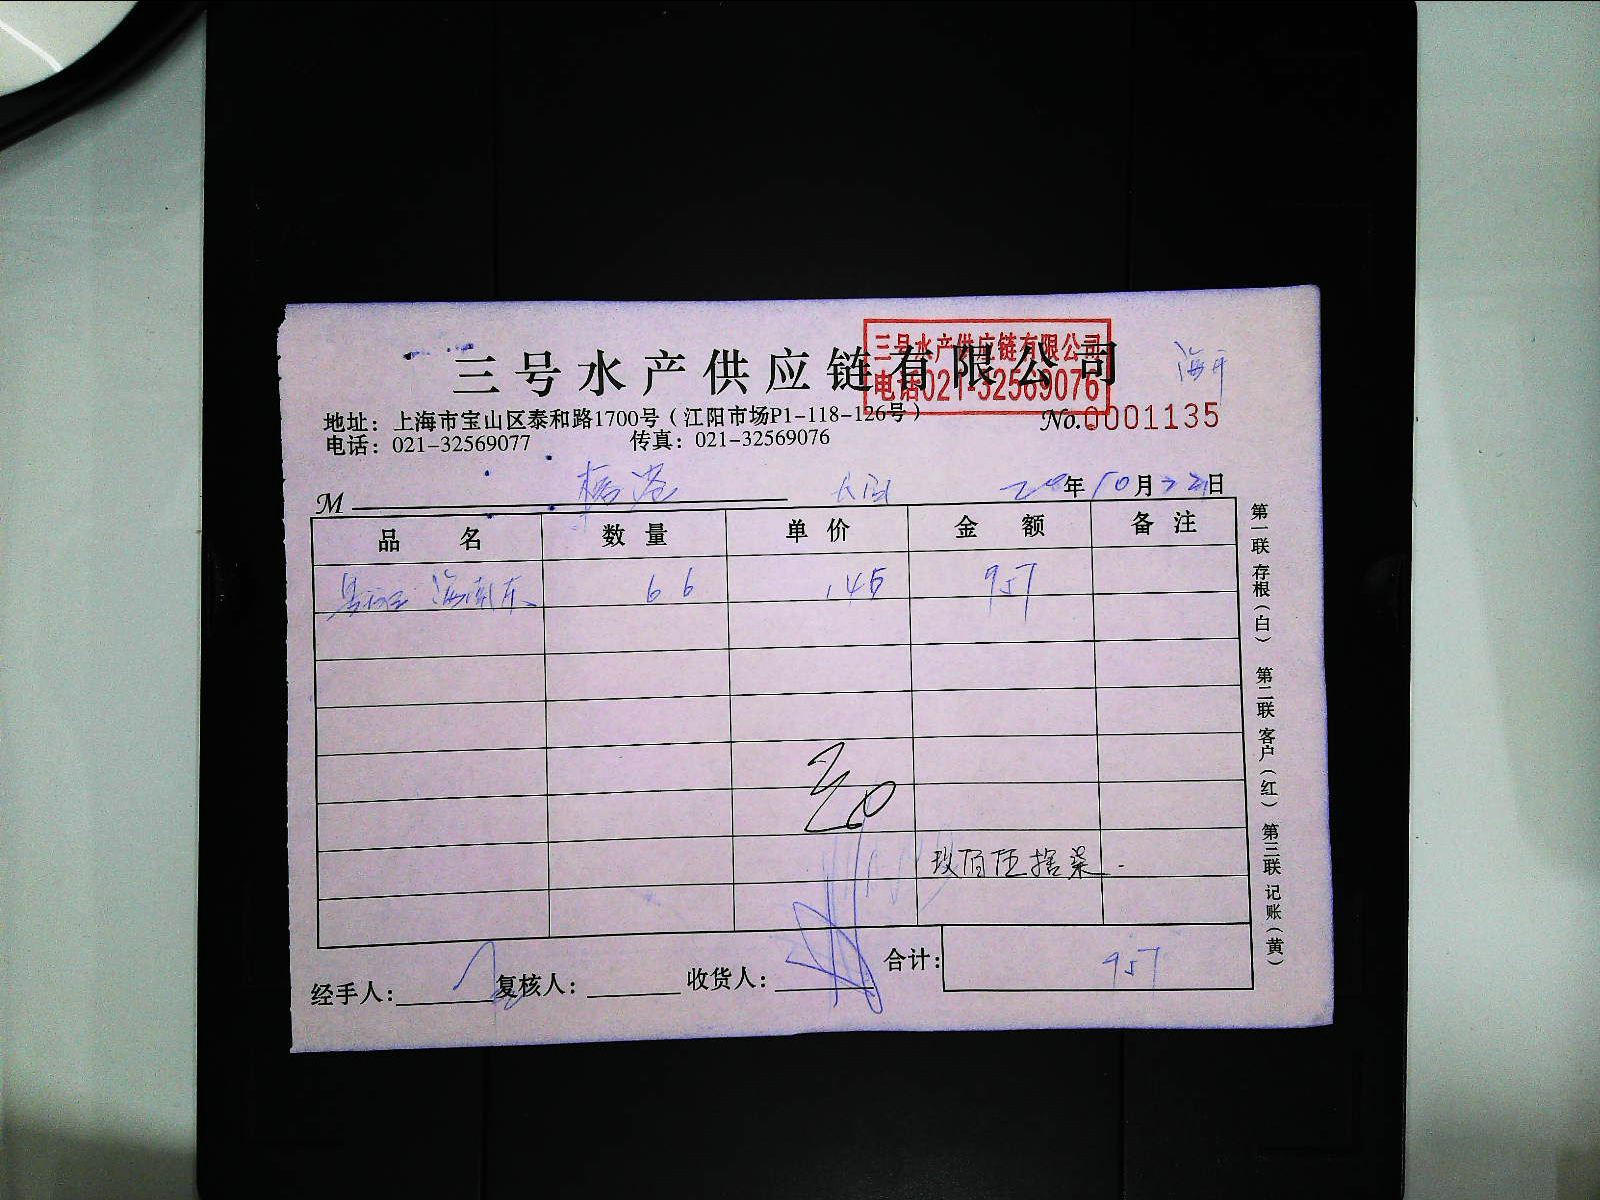 三号水产供应链有限公司
三号水产供应链有限公司
电话021-32569076
地址：上海市宝山区泰和路1700号（江阳市场P1-118-126号）
No.0001135
电话：021-32569077 传真：021-32569076
M 年10月 日
品名 数量 单价 金额 备注
海南东 6.6 145 957
玖佰伍拾柒
合计：957
经手人： 复核人： 收货人：
第一联 存根（白） 第二联 客户（红） 第三联 记账（黄）